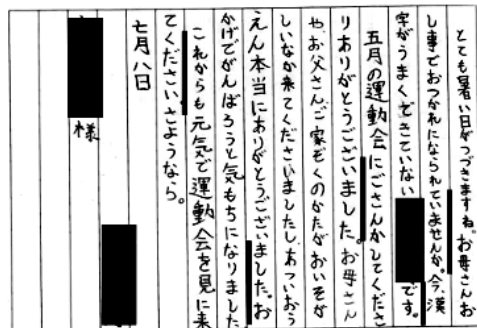 とても暑い日がつづきますね。お母さんお
し事でおつかれになられていませんか。今、漢
字がうまくできていないです。
五月の運動会にごさんかしてくださ
りありがとうございました。お母さん
や、お父さん、ご家ぞくのかたがおいそが
しいなか来てくださいましたし、あついおう
えん本当にありがとうございました。お
かげでがんばろうと気もちになりました
これからも元気で運動会を見に来
てくださいさようなら。
七月八日
様